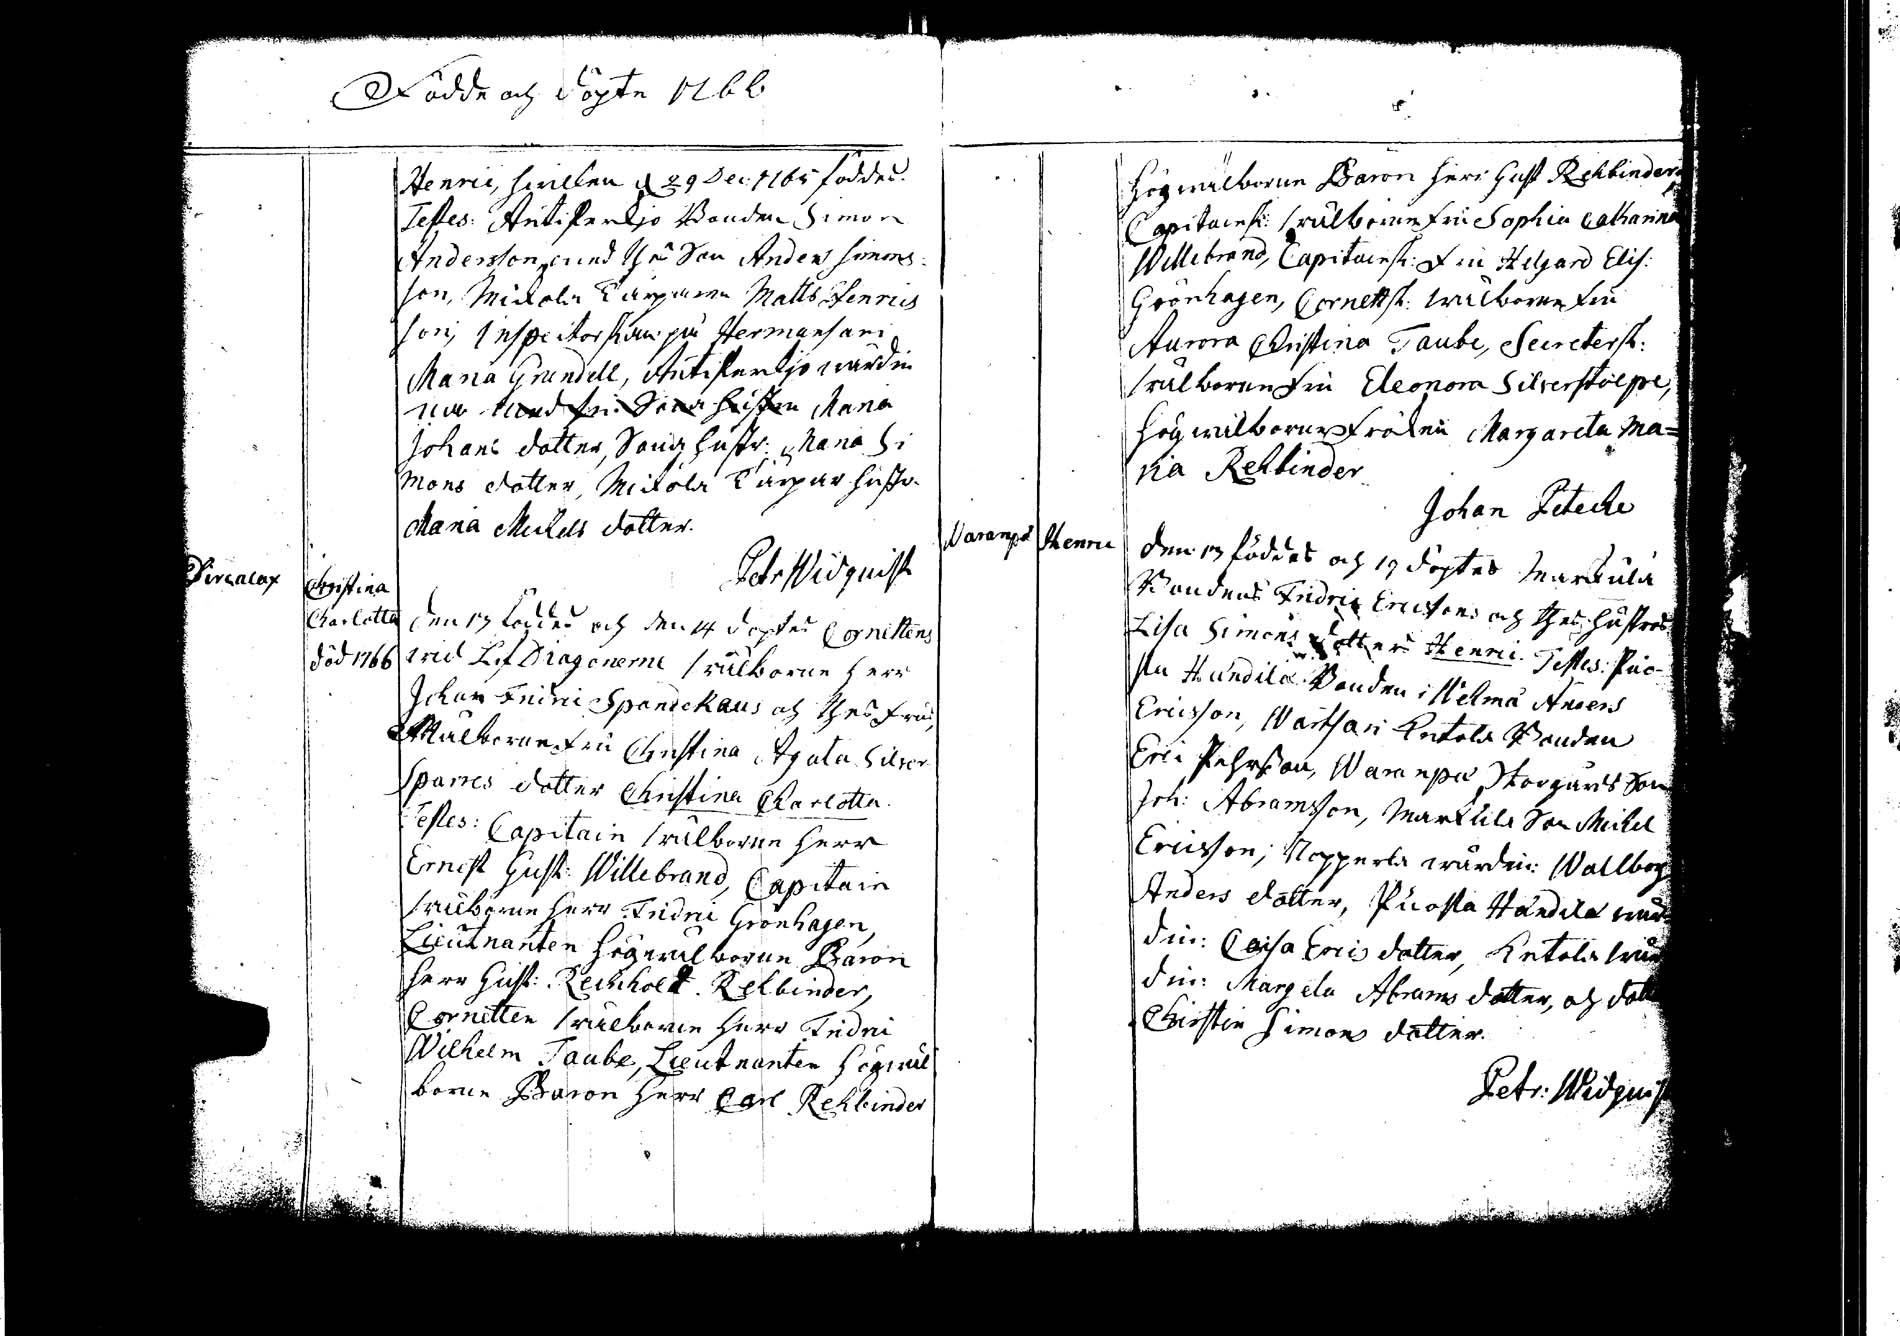 Födde och Döpte 1766
Henric, hwilken d 29 Dec: 1765 föddes.
Testes: Anti Bonden Simon
Andersson, med thes Son Anders Simons-
son, Mickola Matts Henrics
son, Inspectorskan på Hermansari
Maria Grundell, Anti wärdin
nan med sin Sons hustru Maria
Johans dotter, Sons hustr: Maria Si
mons dotter, Mickola hustr.
Maria Mickels dotter.
Petr: Widquist
Pircalax
Christina
Charlotta
död 1766
den 13 föddes och den 14 döptes Cornettens
wid Lif Dragonerne wälborne Herr
Johan Fridric Spandekaus och thes Frus,
Wälborne Fru Christina Agata Silfver
sparres dotter Christina Charlotta.
Testes: Capitain wälborne Herr
Ernest Gust: Willebrand, Capitain
wälborne Herr Fridric Grönhagen,
Lieutnanten Högwälborne Baron
Herr Gust: Reinholt Rehbinder,
Cornetten wälborne Herr Fridric
Wilhelm Taube, Lieutnanten Högwäl
borne Baron Herr Carl Rehbinder
Högwälborne Baron Herr Gust Rehbinder,
Capitainsk: wälborne Fru Sophia Catharina
Willebrand, Capitainsk: Fru Helgard Elis:
Grönhagen, Cornettsk: wälborne Fru
Aurora Christina Taube, Secretersk:
wälborne Fru Eleonora Silferstolpe,
Högwälborne Fröken Margareta Ma=
ria Rehbinder
Johan Peteche
Waranpä
Henric
den 13 föddes och 19 döptes Markula
Bondens Fridric Ericssons och thes hustrus
Lisa Simons dotters Henric. Testes: Puo-
sta Handila Bonden Wilhelmä Anders
Ericsson, Waitsari Entola Bonden
Eric Pehrsson, Waranpä Storgårds Son
Joh: Abramsson, Markula Son Michel
Ericsson, Nopperla wärdin: Wallborg
Anders dotter, Puosta Handila wär-
din: Caisa Erics dotter, Entola wär
din: Margeta Abrams dotter, och dott
Christin Simons dotter.
Petr: Widquist